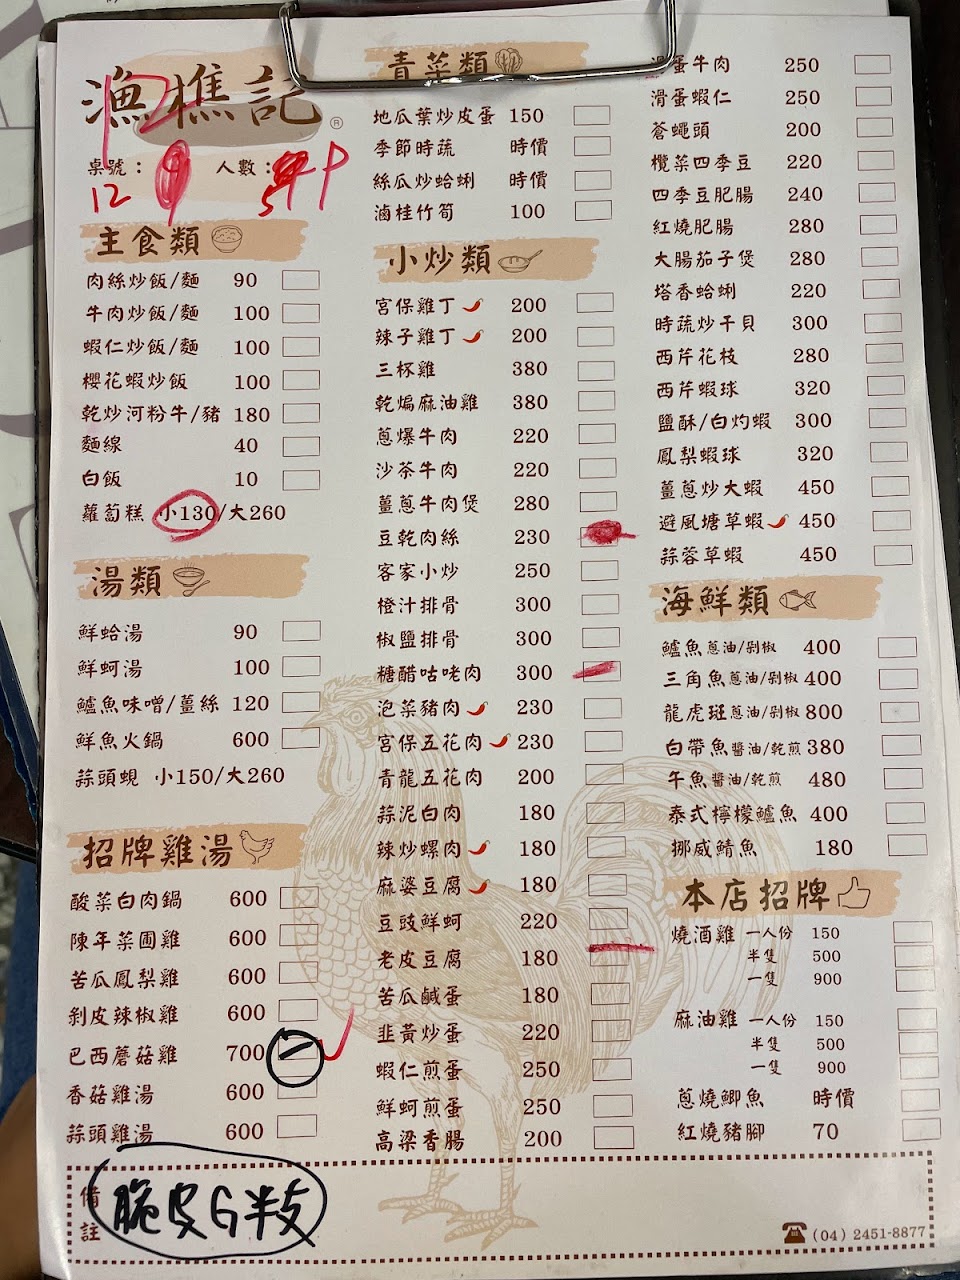 漁樵記®
桌號： 人數：
12 5
主食類
肉絲炒飯/麵 90
牛肉炒飯/麵 100
蝦仁炒飯/麵 100
櫻花蝦炒飯 100
乾炒河粉牛/豬 180
麵線 40
白飯 10
蘿蔔糕 小130/大260
湯類
鮮蛤湯 90
鮮蚵湯 100
鱸魚味噌/薑絲 120
鮮魚火鍋 600
蒜頭蜆 小150/大260
招牌雞湯
酸菜白肉鍋 600
陳年菜圃雞 600
苦瓜鳳梨雞 600
剝皮辣椒雞 600
巴西蘑菇雞 700
香菇雞湯 600
蒜頭雞湯 600
青菜類
地瓜葉炒皮蛋 150
季節時蔬 時價
絲瓜炒蛤蜊 時價
滷桂竹筍 100
小炒類
宮保雞丁 200
辣子雞丁 200
三杯雞 380
乾煸麻油雞 380
蔥爆牛肉 220
沙茶牛肉 220
薑蔥牛肉煲 280
豆乾肉絲 230
客家小炒 250
橙汁排骨 300
椒鹽排骨 300
糖醋咕咾肉 300
泡菜豬肉 230
宮保五花肉 230
青龍五花肉 200
蒜泥白肉 180
辣炒螺肉 180
麻婆豆腐 180
豆豉鮮蚵 220
老皮豆腐 180
苦瓜鹹蛋 180
韭黃炒蛋 220
蝦仁煎蛋 250
鮮蚵煎蛋 250
高梁香腸 200
滑蛋牛肉 250
滑蛋蝦仁 250
蒼蠅頭 200
欖菜四季豆 220
四季豆肥腸 240
紅燒肥腸 280
大腸茄子煲 280
塔香蛤蜊 220
時蔬炒干貝 300
西芹花枝 280
西芹蝦球 320
鹽酥/白灼蝦 300
鳳梨蝦球 320
薑蔥炒大蝦 450
避風塘草蝦 450
蒜蓉草蝦 450
海鮮類
鱸魚蔥油/剁椒 400
三角魚蔥油/剁椒 400
龍虎斑蔥油/剁椒 800
白帶魚醬油/乾煎 380
午魚醬油/乾煎 480
泰式檸檬鱸魚 400
挪威鯖魚 180
本店招牌
燒酒雞 一人份 150
半隻 500
一隻 900
麻油雞 一人份 150
半隻 500
一隻 900
蔥燒鯽魚 時價
紅燒豬腳 70
備註
脆皮G半支
(04) 2451-8877